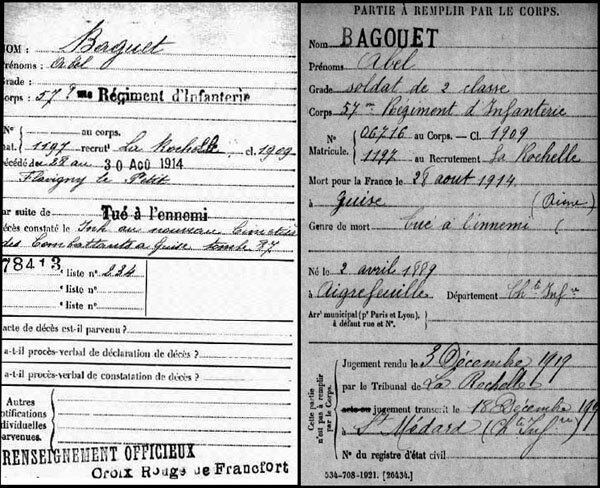 NOM : Baguet
Prénoms : Abel
Grade :
Corps : 57ème Régiment d'Infanterie
N° au corps.
mat. 1197 recrut^t La Rochelle cl. 1909
Décédé le 28 au 30 AOÛ 1914
Flavigny le Petit
Par suite de Tué à l'ennemi
Décès constaté le Inh au nouveau Cimetière
des Combattants à Guise tombe 87
78413 liste n° 234
" liste n°
" liste n°
acte de décès est-il parvenu ?
a-t-il procès-verbal de déclaration de décès ?
a-t-il procès-verbal de constatation de décès ?
Autres
notifications
individuelles
parvenues.
RENSEIGNEMENT OFFICIEUX
Croix Rouge de Francfort
PARTIE À REMPLIR PAR LE CORPS.
Nom BAGOUET
Prénoms Abel
Grade soldat de 2 classe
Corps 57me Régiment d'Infanterie
N° 06716 au Corps. — Cl. 1909
Matricule. 1197 au Recrutement La Rochelle
Mort pour la France le 28 août 1914
à Guise (Aisne)
Genre de mort tué à l'ennemi (
Né le 2 avril 1889
à Aigrefeuille Département Ch^te Inf^re
Arr^t municipal (p^r Paris et Lyon),
à défaut rue et N°.
Cette partie
n'est pas à remplir
par le Corps.
Jugement rendu le 3 Décembre 1919
par le Tribunal de La Rochelle
acte ou jugement transcrit le 18 Décembre 1919
à St Médard (Ch^te Inf^re)
N° du registre d'état civil
534-708-1921. [26434.]